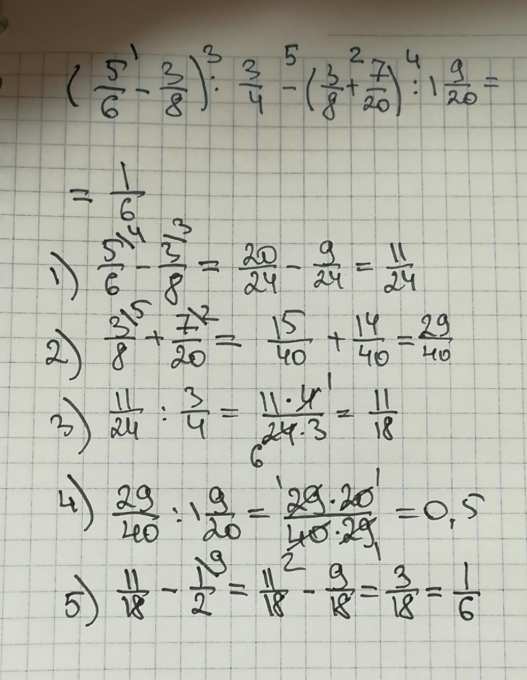 (5/6 -¹ 3/8) :³ 3/4 -⁵ (3/8 +² 7/20) :⁴ 1 9/20 =
= 1/6
1) 5\4/6 - 3\3/8 = 20/24 - 9/24 = 11/24
2) 3\5/8 + 7\2/20 = 15/40 + 14/40 = 29/40
3) 11/24 : 3/4 = 11·4 1/6 24·3 = 11/18
4) 29/40 : 1 9/20 = 1 29·20 1/2 40·29 1 = 0,5
5) 11/18 - 1\9/2 = 11/18 - 9/18 = 3/18 = 1/6